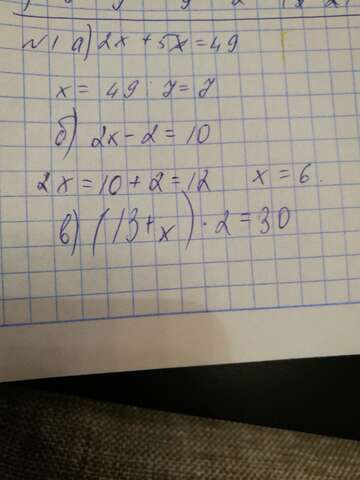 №1 а) 2x + 5x = 49
x = 49 : 7 = 7
б) 2x - 2 = 10
2x = 10 + 2 = 12 x = 6.
в) (13 + x) · 2 = 30